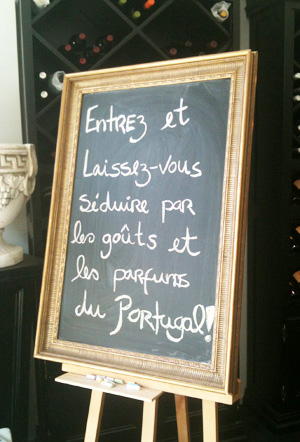 Entrez et
Laissez-vous
séduire par
les goûts et
les parfums
du Portugal!